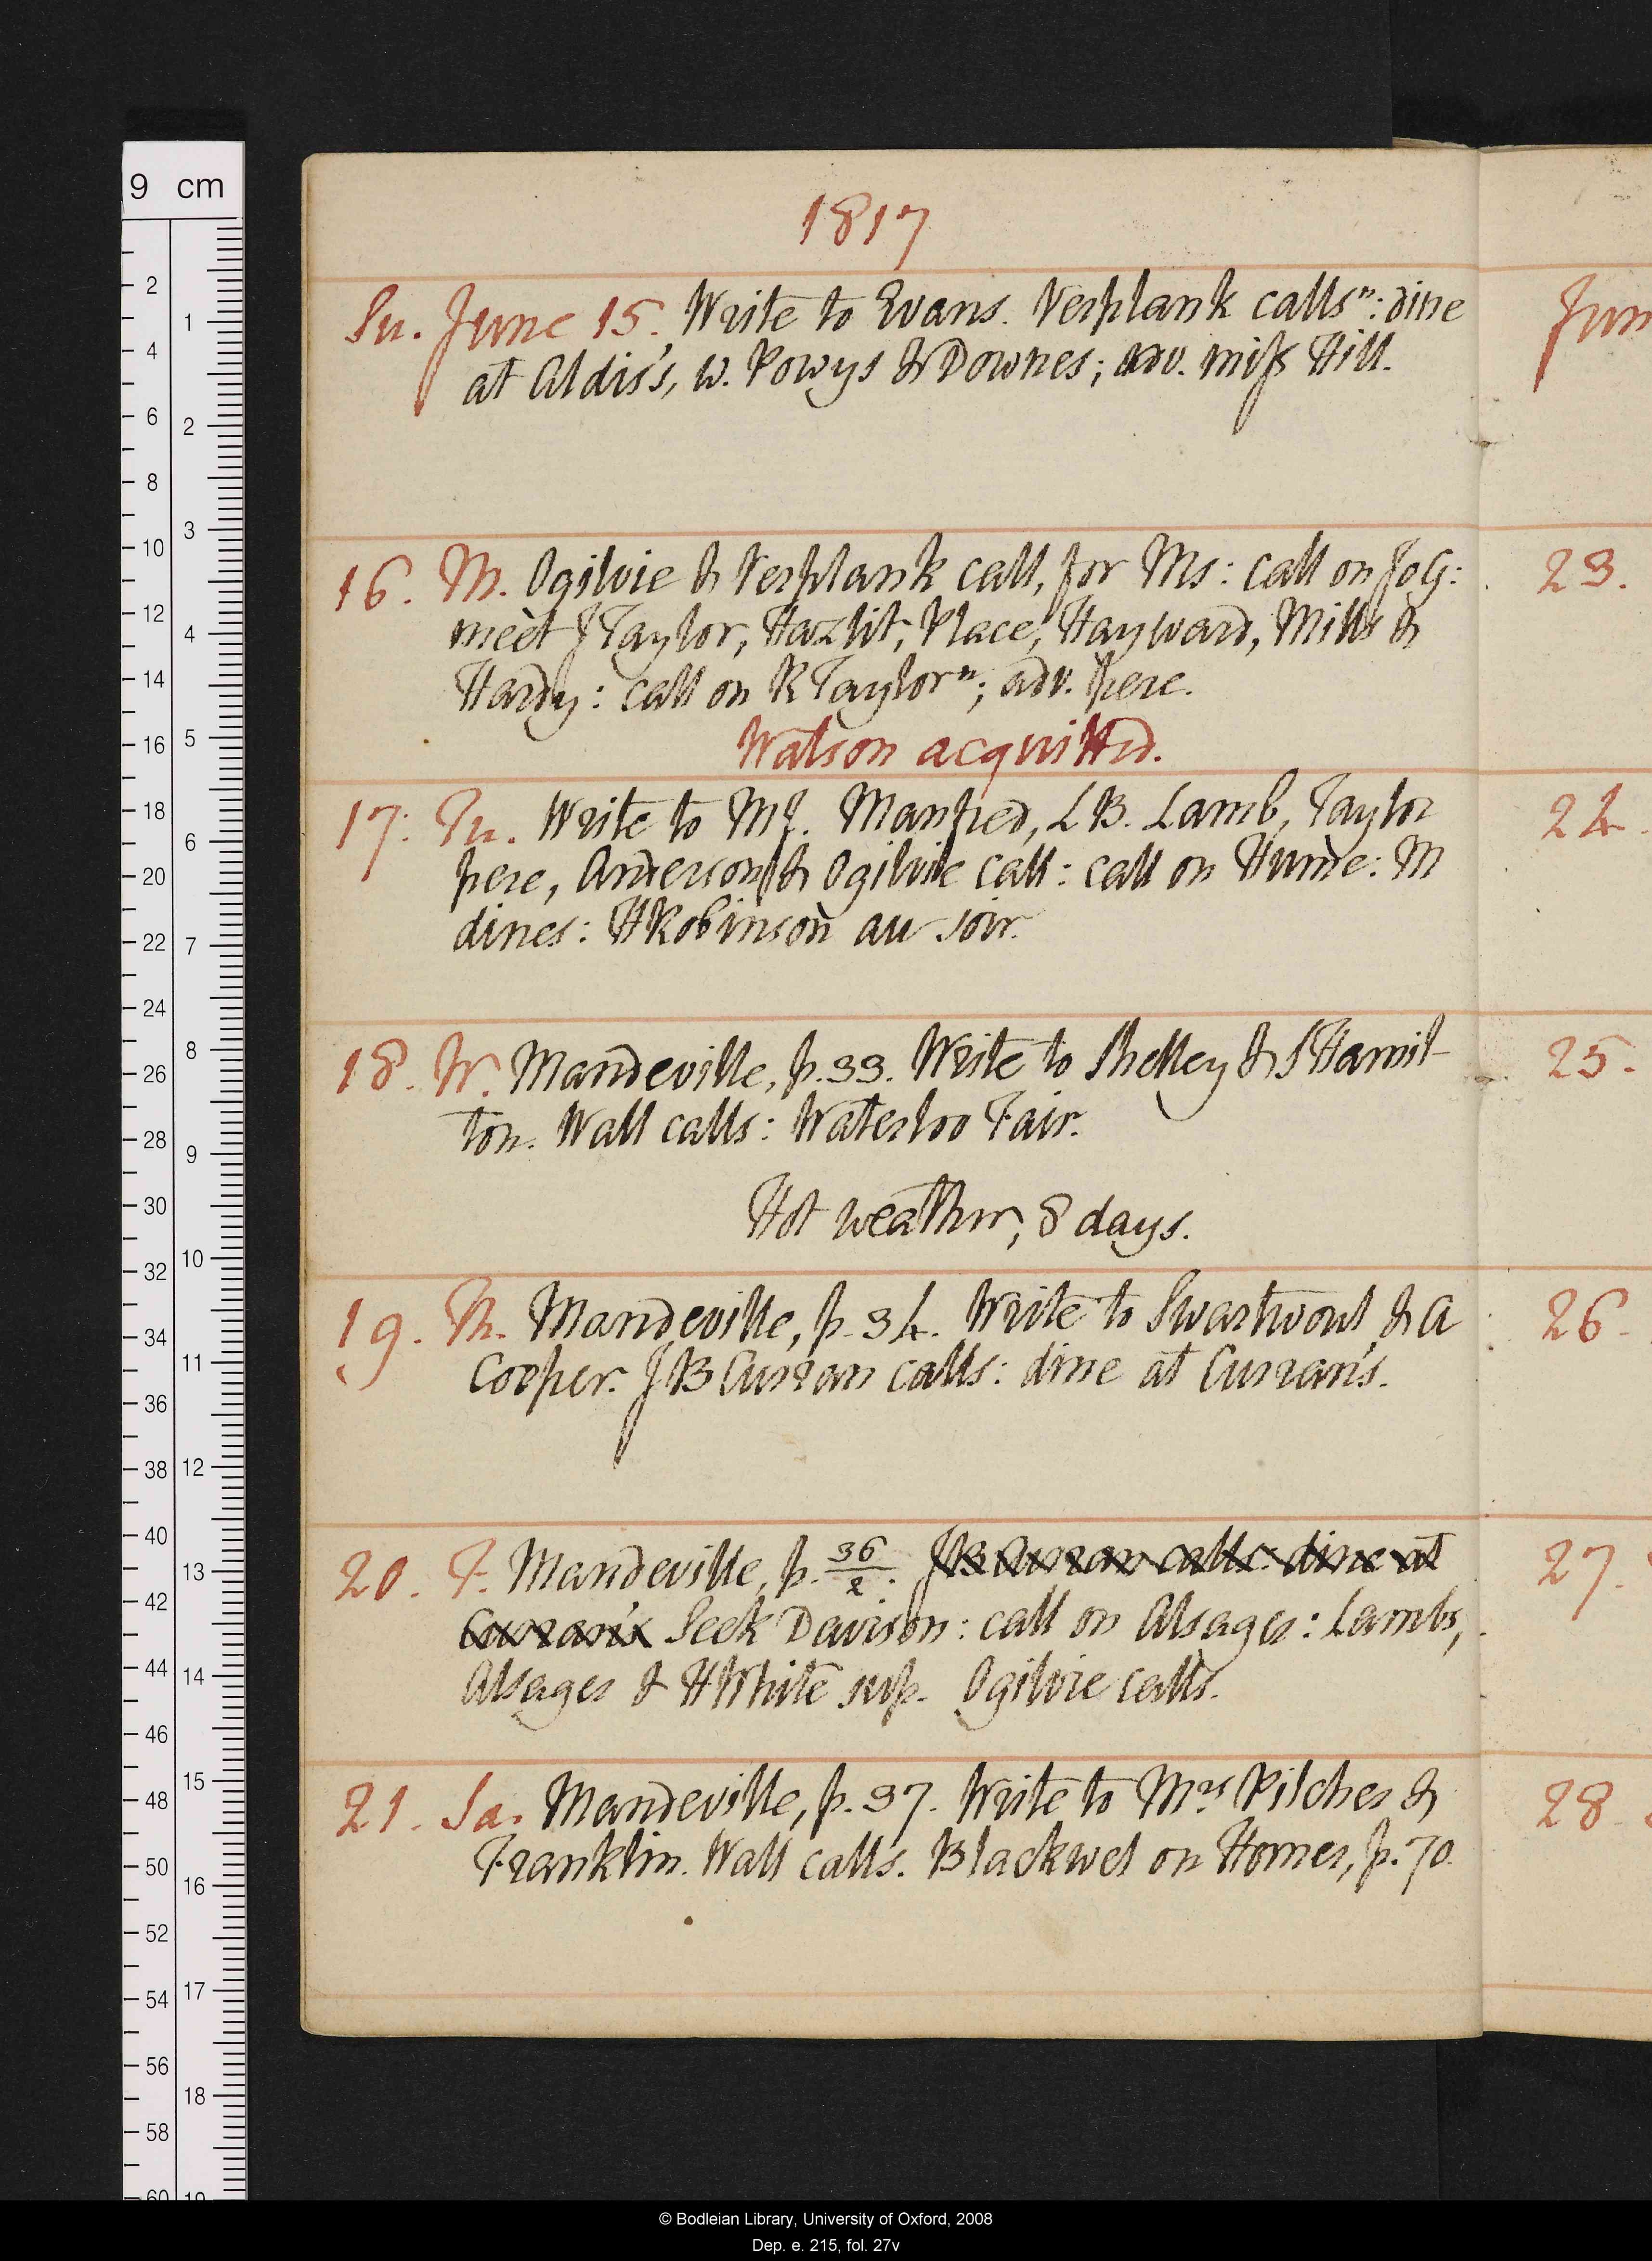 1817
Su. June 15. Write to Evans. Verplank callsⁿ: dine
at Aldis's, w. Powys & Downes; adv. miss Hill.
16. M. Ogilvie & Verplank call, for Ms: call on JoG:
meet J Taylor, Hazlit, Place, Hayward, Mills &
Hardy: call on R Taylorⁿ; adv. Pere.
Watson acquitted.
17. Tu. Write to MJ. Manfred, LB. Lamb, Taylor
Pere, Anderson & Ogilvie call: call on Hume: M
dines: H Robinson au soir.
18. W. Mandeville, p. 33. Write to Shelley & S Hamil-
ton. Wall calls: Waterloo Fair.
Hot weather, 8 days.
19. Th. Mandeville, p. 34. Write to Swartwout & A
Cooper. J B Curran calls: dine at Curran's.
20. F. Mandeville, p. 36/2. J B Curran calls: dine at
Curran's Seek Davison: call on Alsages: Lambs,
Alsages & H White sup. Ogilvie calls.
21. Sa. Mandeville, p. 37. Write to Mrs Pilcher &
Franklin. Wall calls. Blackwel on Homer, p. 70.
Jun
23.
24.
25.
26.
27.
28.
9 cm
2
4
6
8
10
12
14
16
18
20
22
24
26
28
30
32
34
36
38
40
42
44
46
48
50
52
54
56
58
60
1
2
3
4
5
6
7
8
9
10
11
12
13
14
15
16
17
18
19
© Bodleian Library, University of Oxford, 2008
Dep. e. 215, fol. 27v